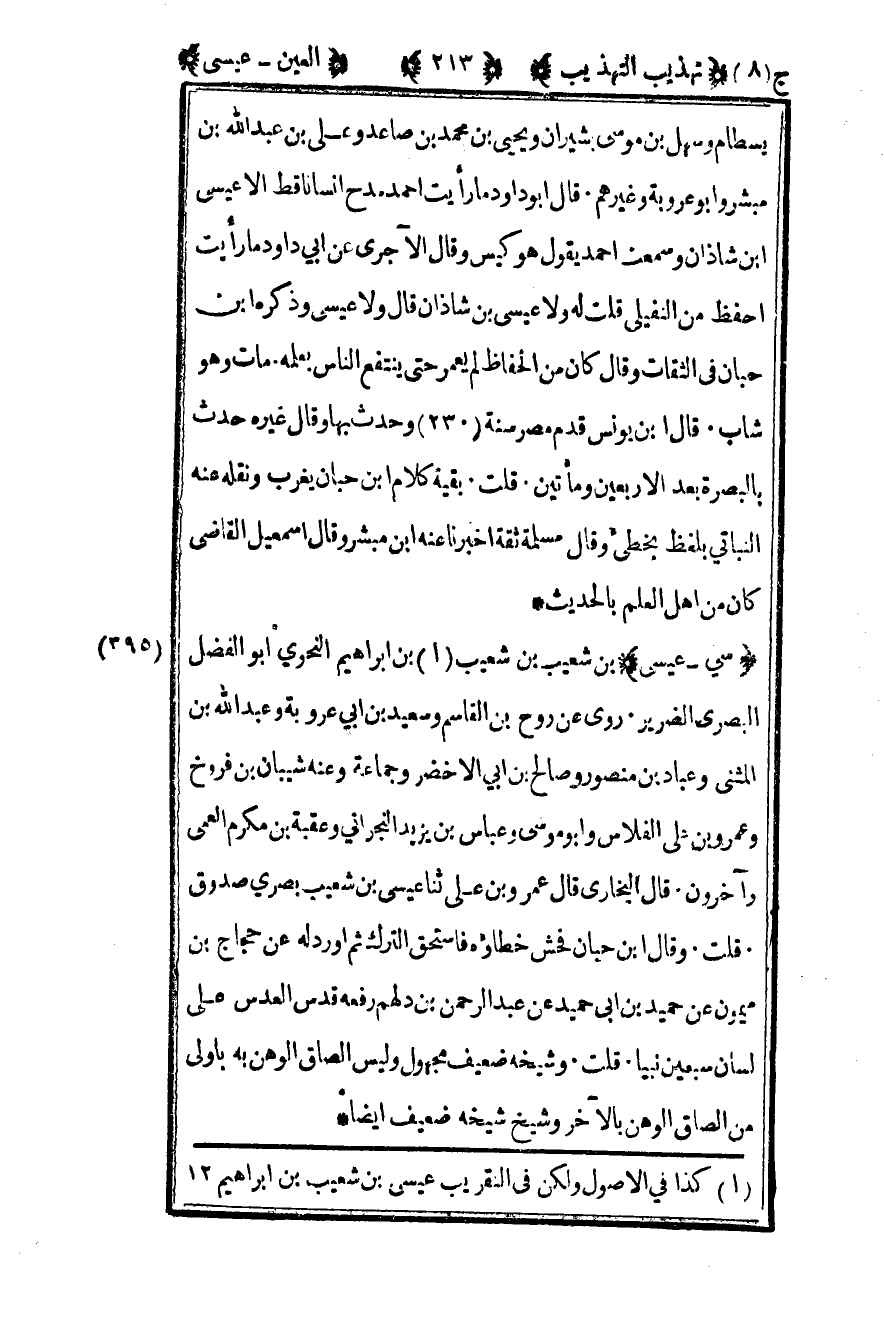 ج(٨) ﴿تهذيب التهذيب﴾ ﴿٢١٣﴾ ﴿العين - عيسى﴾
بسطام وسهل بن موسى بشيران ويحيى بن محمد بن صاعد وعلى بن عبد الله بن
مبشر وابو عروبة وغيرهم ٠ قال ابو داود ما رأيت احمد مدح انسانا قط الا عيسى
ابن شاذان وسمعت احمد يقول هو كيس وقال الآجرى عن ابي داود ما رأيت
احفظ من النفيلى قلت له ولا عيسى بن شاذان قال ولا عيسى وذكره ابن
حبان فى الثقات وقال كان من الحفاظ لم يعمر حتى ينتفع الناس بعلمه ٠ مات وهو
شاب ٠ قال ابن يونس قدم مصر سنة (٢٣٠) وحدث بها وقال غيره حدث
بالبصرة بعد الاربعين ومأتين ٠ قلت ٠ بقية كلام ابن حبان يغرب ونقله عنه
النباتي بلفظ يخطئ وقال مسلمة ثقة اخبرنا عنه ابن مبشر وقال اسمعيل القاضى
كان من اهل العلم بالحديث*
﴿ سي - عيسى﴾ بن شعيب بن شعيب (١) بن ابراهيم النحوي ابو الفضل (٣٩٥)
البصرى الضرير ٠ روى عن روح بن القاسم وسعيد بن ابي عروبة وعبد الله بن
المثنى وعباد بن منصور وصالح بن ابي الاخضر وجماعة وعنه شيبان بن فروخ
وعمرو بن على الفلاس وابو موسى وعباس بن يزيد النجراني وعقبة بن مكرم العمى
وآخرون ٠ قال البخارى قال عمرو بن على ثنا عيسى بن شعيب بصري صدوق
٠ قلت ٠ وقال ابن حبان فحش خطاؤه فاستحق الترك ثم اورد له عن حجاج بن
ميمون عن حميد بن ابى حميد عن عبد الرحمن بن دلهم رفعه قدس العدس على
لسان سبعين نبيا ٠ قلت ٠ وشيخه ضعيف مجهول وليس الصاق الوهن به باولى
من الصاق الوهن بالآخر وشيخ شيخه ضعيف ايضا*
(١) كذا في الاصول ولكن فى التقريب عيسى بن شعيب بن ابراهيم ١٢